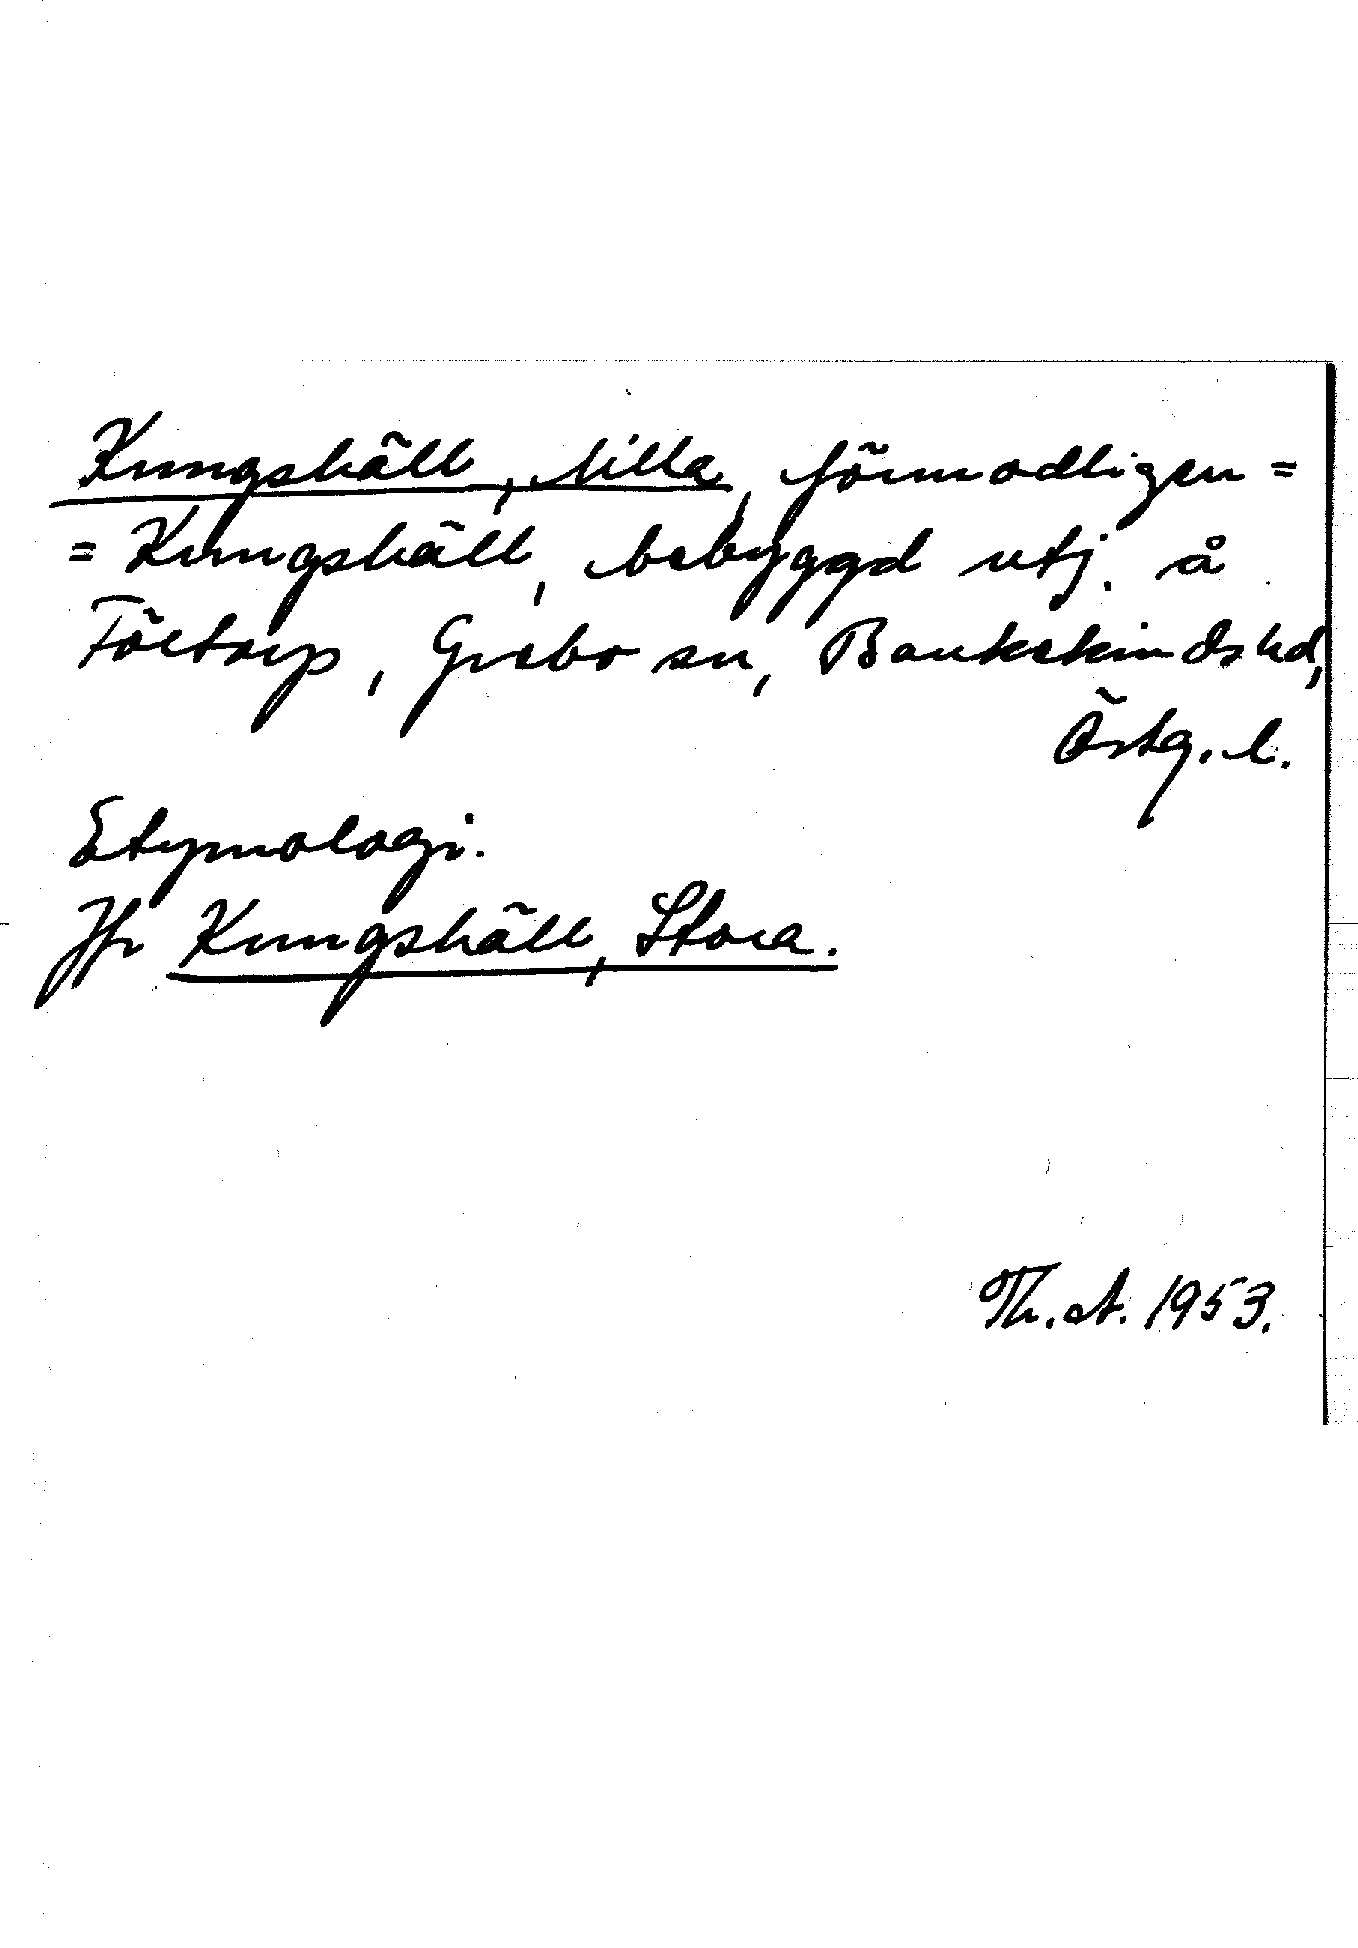 Kungshäll, Lilla, förmodligen =
= Kungshäll, bebyggd utj. å
Föltorp, Grebo sn, Bankekinds hd,
Östg. l.
Etymologi.
Jfr Kungshäll, Stora.
Th. A. 1953.